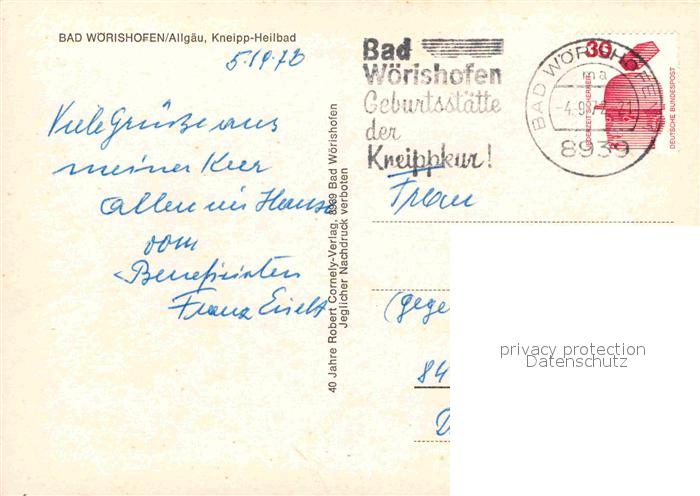 BAD WÖRISHOFEN/Allgäu, Kneipp-Heilbad
Viele Grüße aus
meiner Kur
allen im Hause
vom
Franz
40 Jahre Robert Cornely-Verlag, 8939 Bad Wörishofen
Jeglicher Nachdruck verboten
Bad
Wörishofen
Geburtsstätte
der
Kneippkur!
BAD WÖRISHOFEN
ma
8939
30
JEDERZEIT SICHERHEIT
DEUTSCHE BUNDESPOST
Frau
(gege
84
D
privacy protection
Datenschutz